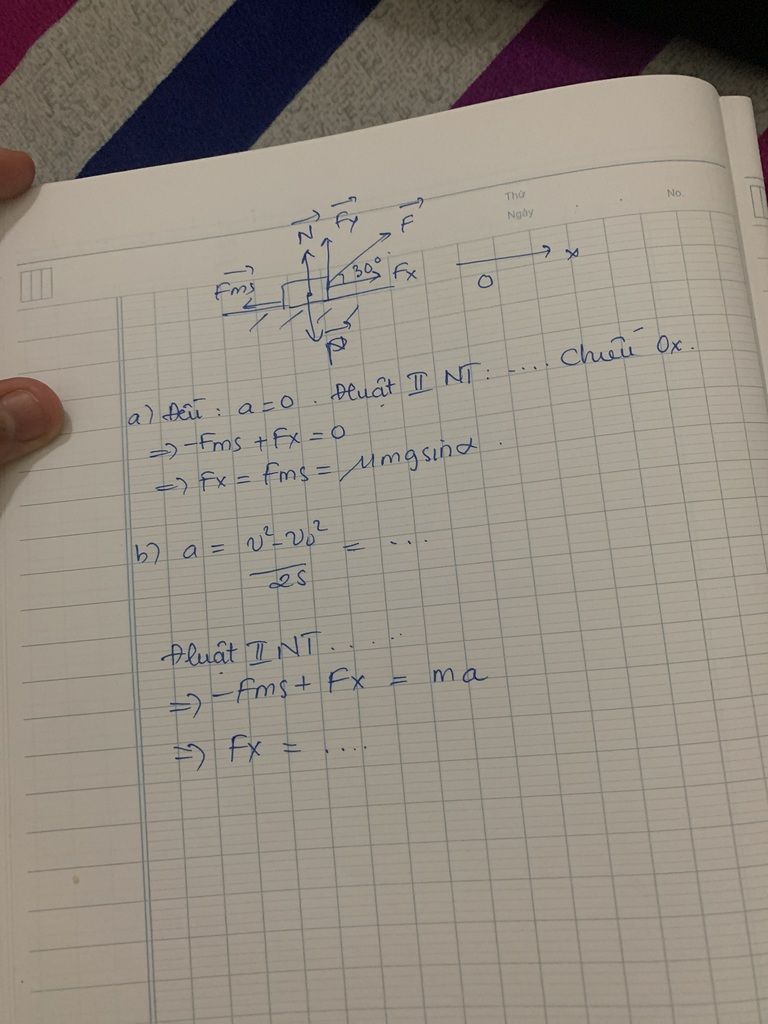 Thứ
Ngày
No.
N Fy F
Fms 30° Fx
O x
P
a) Đều : a = 0 . Đluật II NT : .... Chiếu Ox.
=> -Fms + Fx = 0
=> Fx = Fms = μmgsinα .
b) a = v² - v₀² / 2S = ...
Đluật II NT .....
=> -Fms + Fx = ma
=> Fx = ....